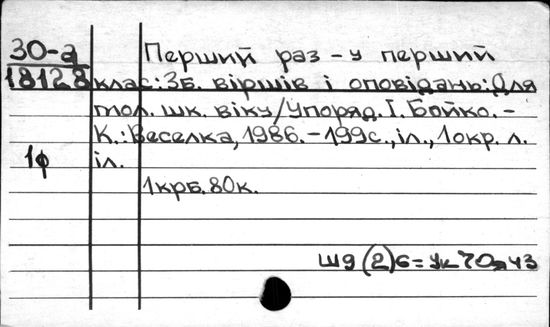 30-а Перший раз – у перший
18128 клас: Зб. віршів і оповідань: Для
мол. шк. віку/Упоряд. Г. Бойко. –
К.: Веселка, 1986. – 199с., іл., 1 окр. л.
1ф іл.
1крб. 80к.
Ш9(2)6=Ук70я43